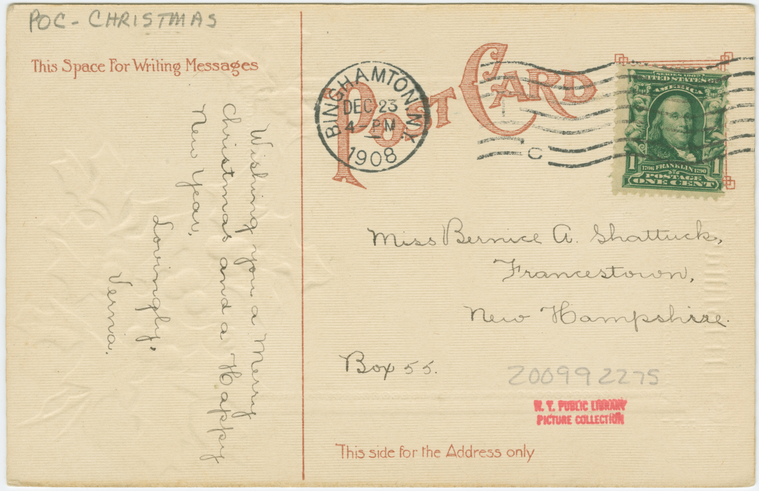 POC - CHRISTMAS
This Space For Writing Messages
POST CARD
BINGHAMTON, N.Y.
DEC 23
4 - PM
1908
C
SERIES 1902
UNITED STATES OF
AMERICA
1706 FRANKLIN 1790
POSTAGE
1 ONE CENT 1
Wishing you a Merry
Christmas and a Happy
New Year,
Lovingly,
Verna.
Miss Bernice A. Shattuck,
Francestown,
New Hampshire.
Box 55.
200992275
N. Y. PUBLIC LIBRARY
PICTURE COLLECTION
This side for the Address only